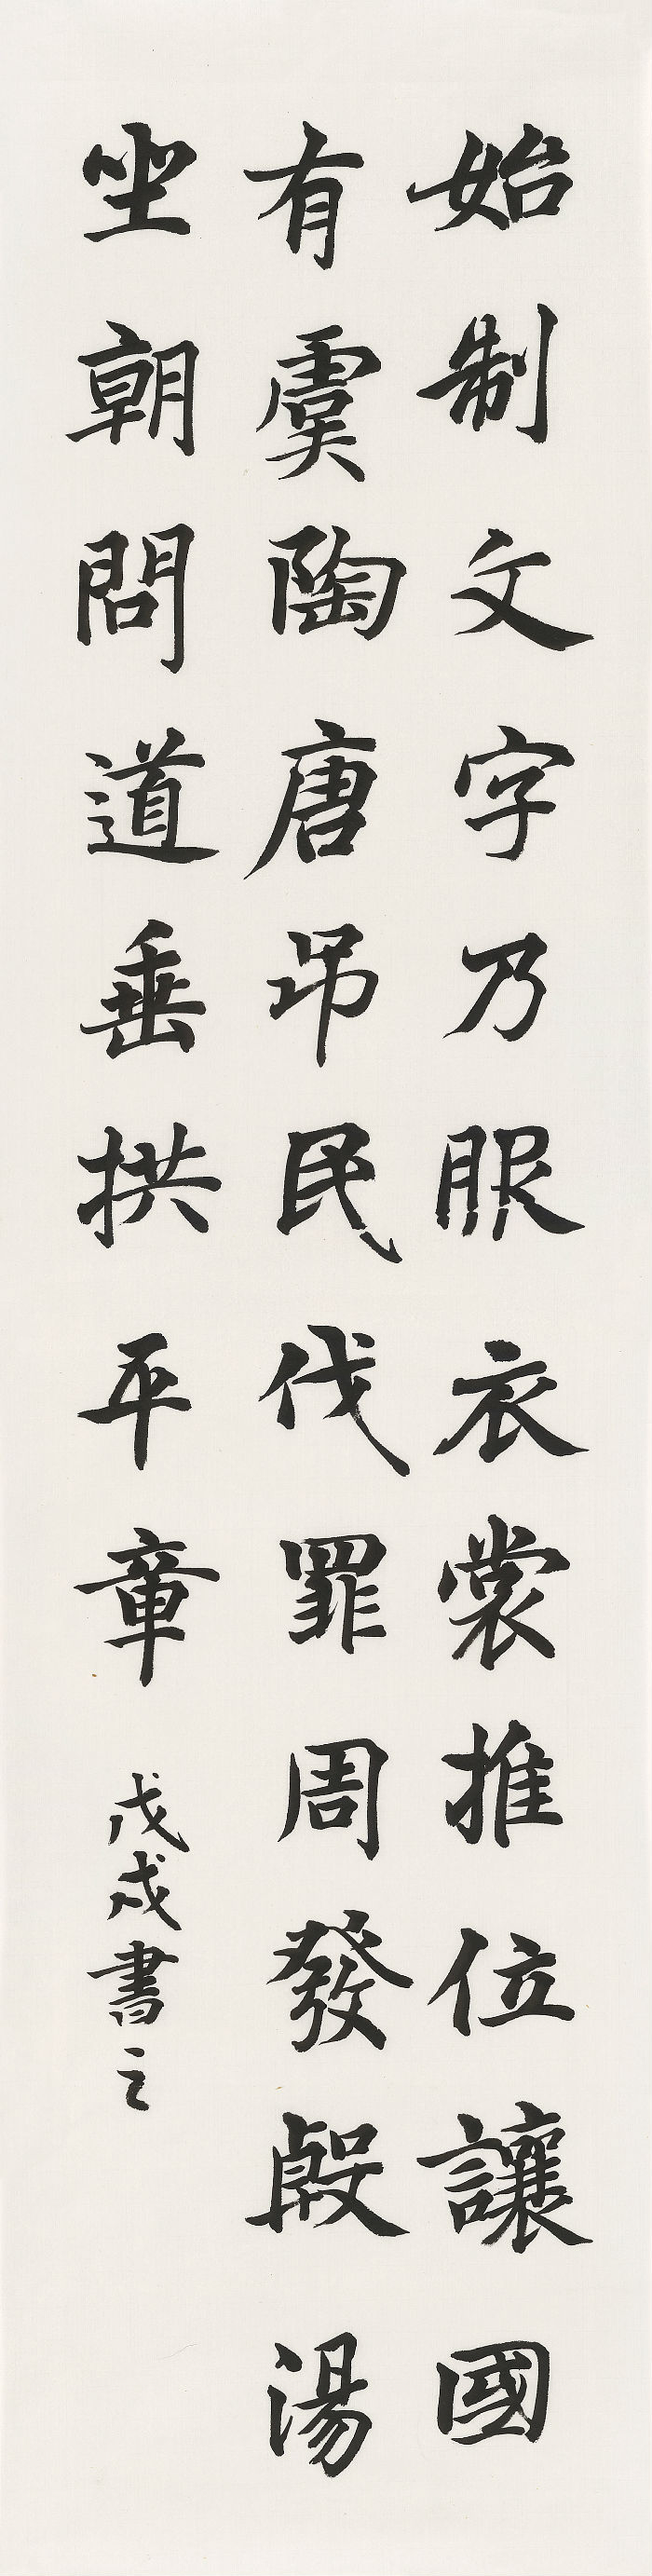 始制文字乃服衣裳推位讓國
有虞陶唐吊民伐罪周發殷湯
坐朝問道垂拱平章
戊戌書之